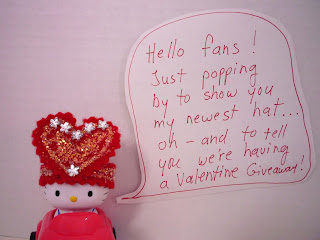 Hello fans!
Just popping
by to show you
my newest hat...
oh - and to tell
you we're having
a Valentine Giveaway!